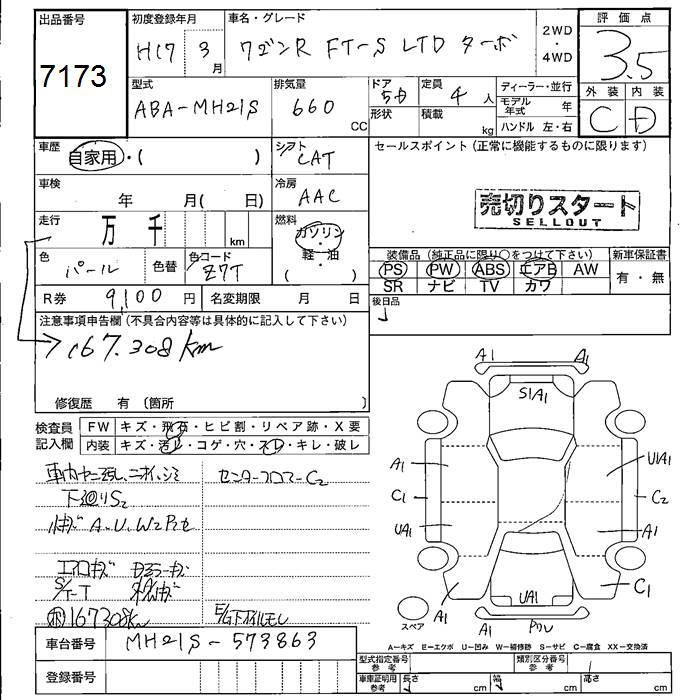 出品番号
7173
初度登録年月
H17 3月
車名・グレード
ワゴンR FT-S LTD ターボ
2WD
・
4WD
評価点
3.5
型式
ABA-MH21S
排気量
660 CC
ドア
5D
形状
定員
4 人
積載
kg
ディーラー・並行
モデル年式 年
ハンドル 左・右
外装 内装
C D
車歴
自家用・( )
シフト
CAT
セールスポイント(正常に機能するものに限ります)
車検
年 月( 日)
冷房
AAC
売切りスタート
SELLOUT
走行
万 千 km
燃料
ガソリン
・
軽・油
色
パール
色替
色コード
Z7T
装備品(純正品に限り○をつけて下さい)
新車保証書
PS PW ABS エアB AW
SR ナビ TV カワ
有・無
R券 9,100円
名変期限 月 日
後日品
注意事項申告欄(不具合内容等は具体的に記入して下さい)
167.308km
修復歴 有〔箇所
検査員記入欄
FW キズ・飛石・ヒビ割・リペア跡・X要
内装 キズ・汚レ・コゲ・穴・スレ・キレ・破レ
下廻りS2
A.U.W2
167308km
A1 A1
S1A1
A1 U1A1
C1 C2
UA1 A1
UA1
A1 C1
スペア
A1
A-キズ E-エクボ U-凹み W-補修跡 S-サビ C-腐食 XX-交換済
車台番号
MH21S-573863
登録番号
型式指定番号 参考
類別区分番号 参考
車庫証明用 参考
長さ cm 幅 cm 高さ cm